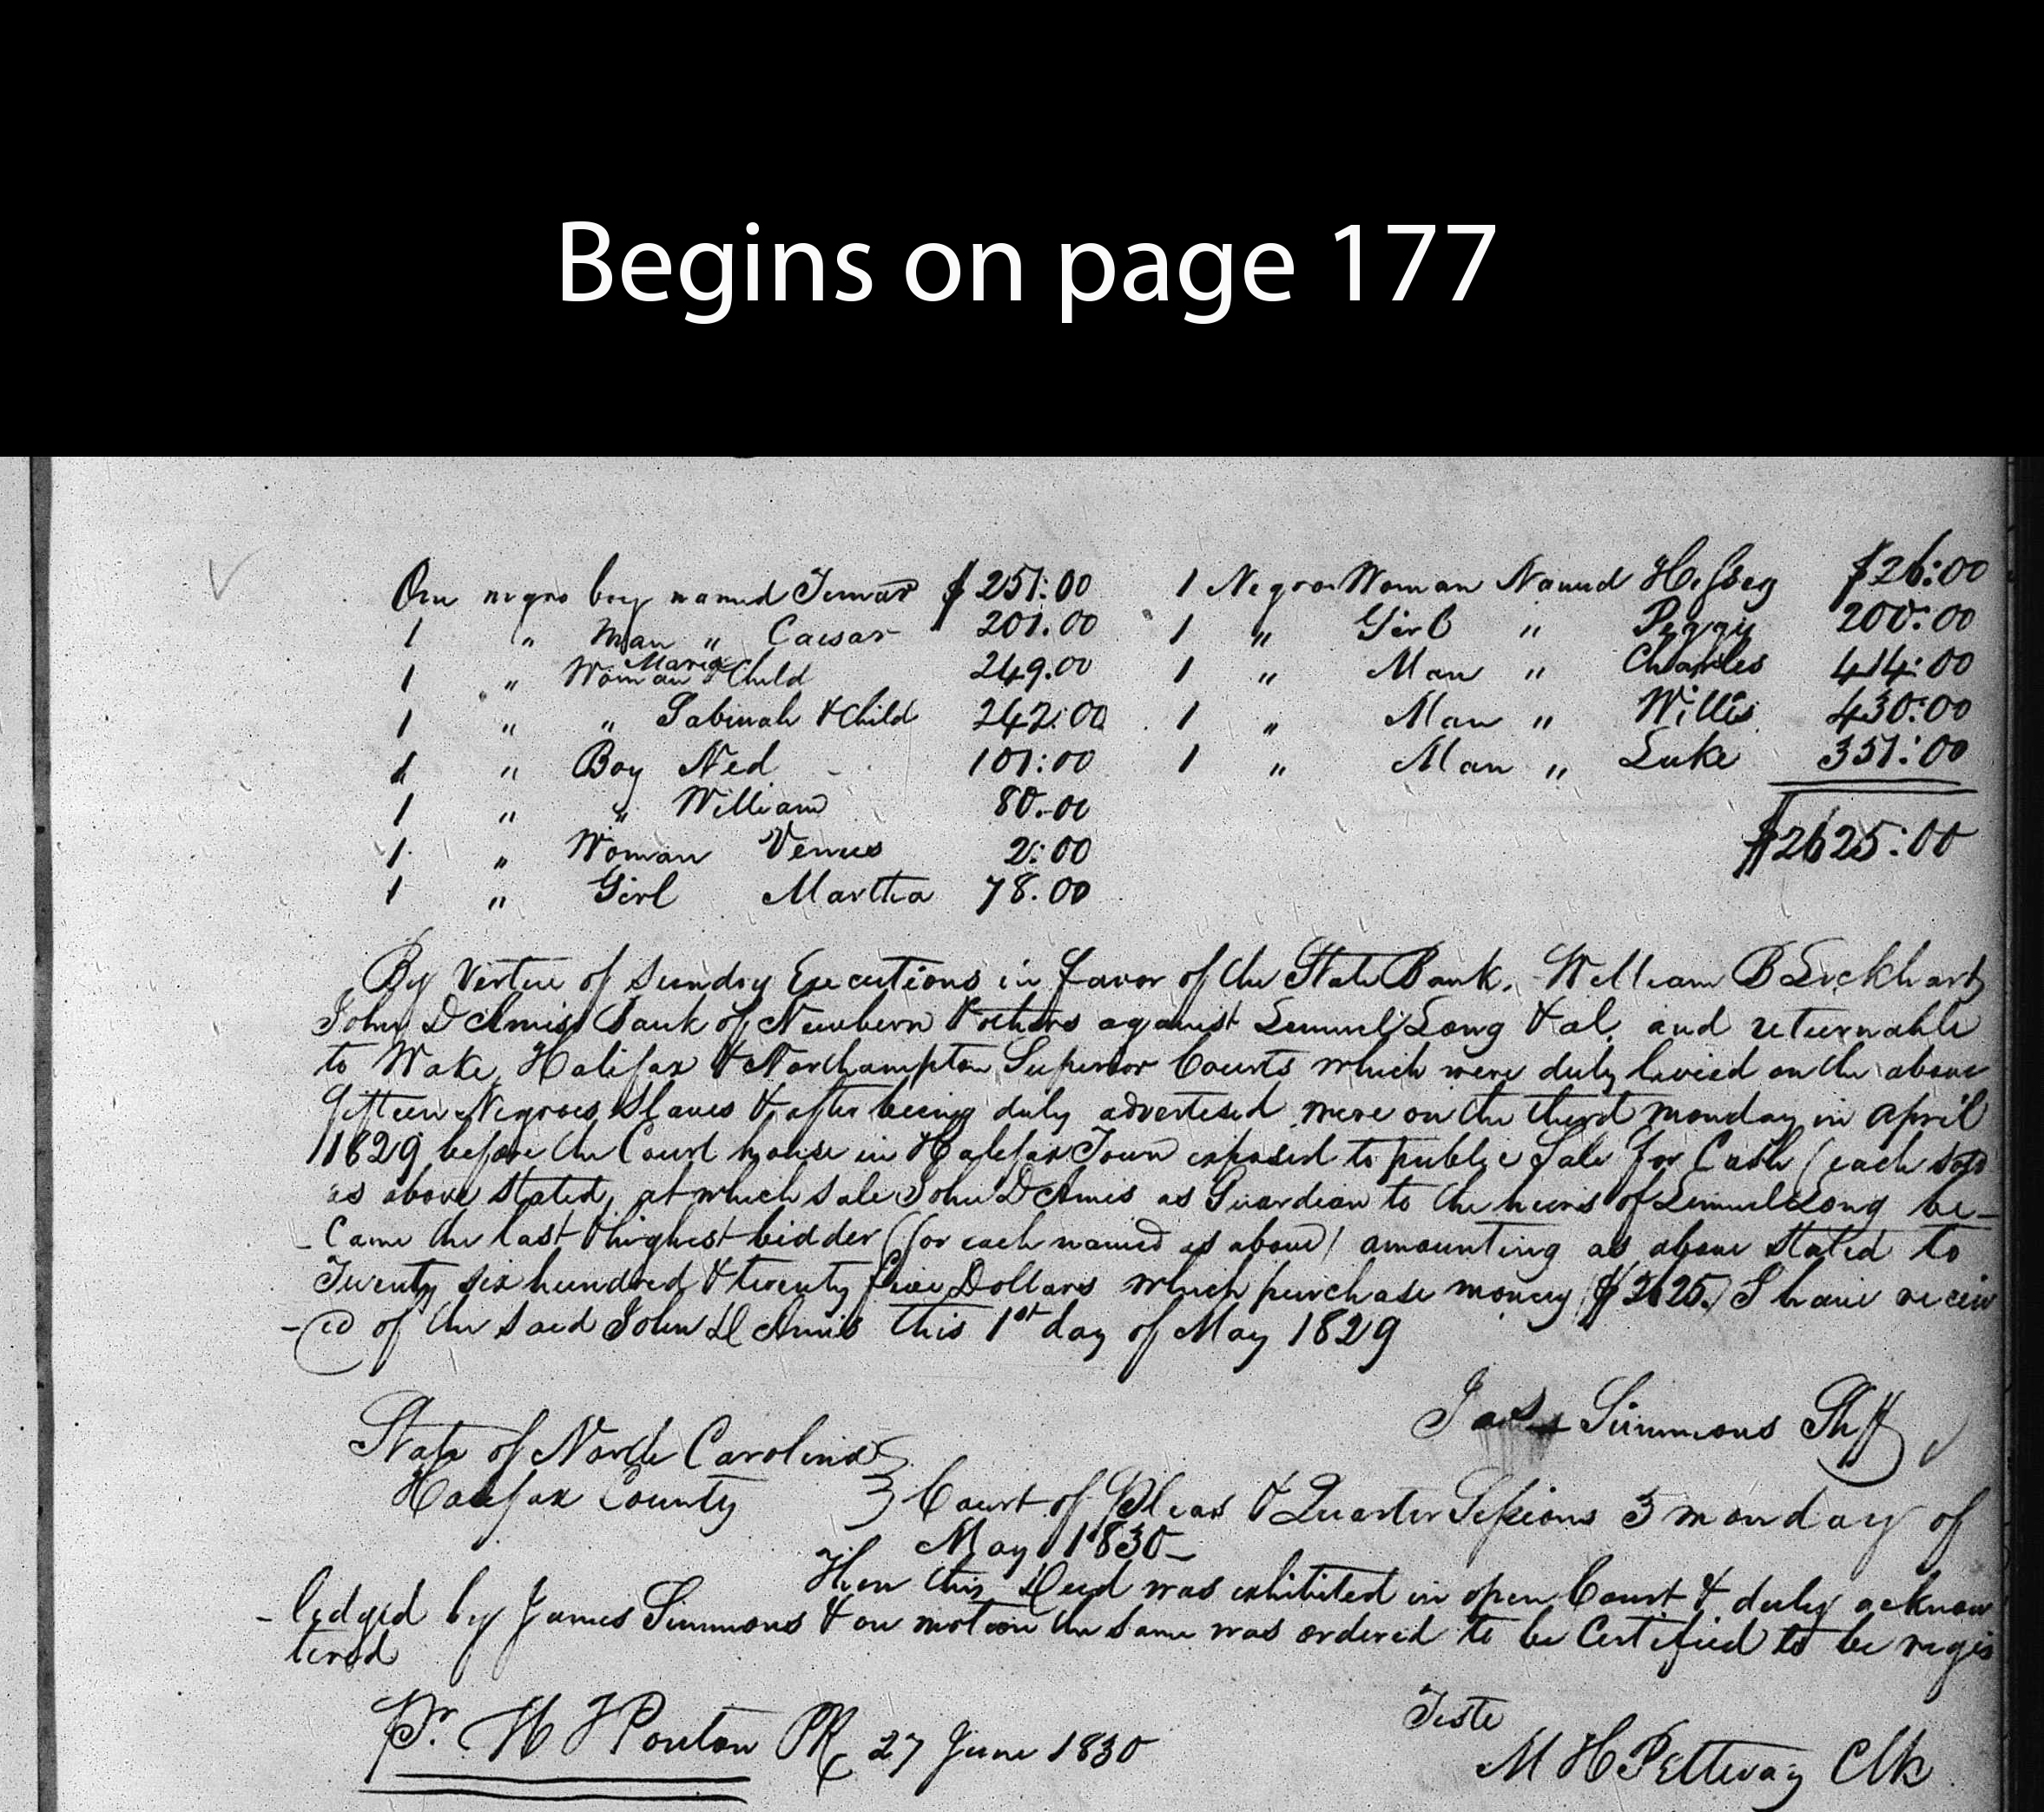 Begins on page 177
One negro boy named $251:00 1 Negro Woman Named Hessey $26:00
1 " Man " Caesar 201.00 1 " Girl " Peggy 200:00
1 " Woman Maria & Child 249.00 1 " Man " Charles 414:00
1 " " Sabinah & Child 242:00 1 " Man " Willis 430:00
1 " Boy Ned - 101:00 1 " Man " Luke 351:00
1 " " William 80.00
$2625:00
1 " Woman Venus 2:00
1 " Girl Martha 78.00
By Vertue of Sundry Executions in favor of the State Bank. William B Lockhart
John D Amis Bank of Newbern & others against Lemuel Long & al. and returnable
to Wake, Halifax & Northampton Superior Courts which were duly levied on the above
fifteen Negroes Slaves & after being duly advertised were on the third monday in April
1829 before the Court house in Halifax Town exposed to public Sale for Cash (each sold
as above stated, at which sale John D Amis as Guardian to the heirs of Lemuel Long be-
-Came the last & highest bidder (for each named as above) amounting as above stated to
Twenty six hundred & twenty five Dollars which purchase money ($2625.) I have receiv
-ed of the said John D Amis this 1st day of May 1829
Jas Simmons Shff
State of North Carolina
Halifax County } Court of Pleas & Quarter Sessions 3 monday of
May 1830-
Then this Deed was exhibited in open Court & duly acknow
-ledged by James Simmons & on motion the same was ordered to be Certified to be regis
tered
Teste
Pr. H J Pouton PR 27 June 1830
M H Pettway Clk